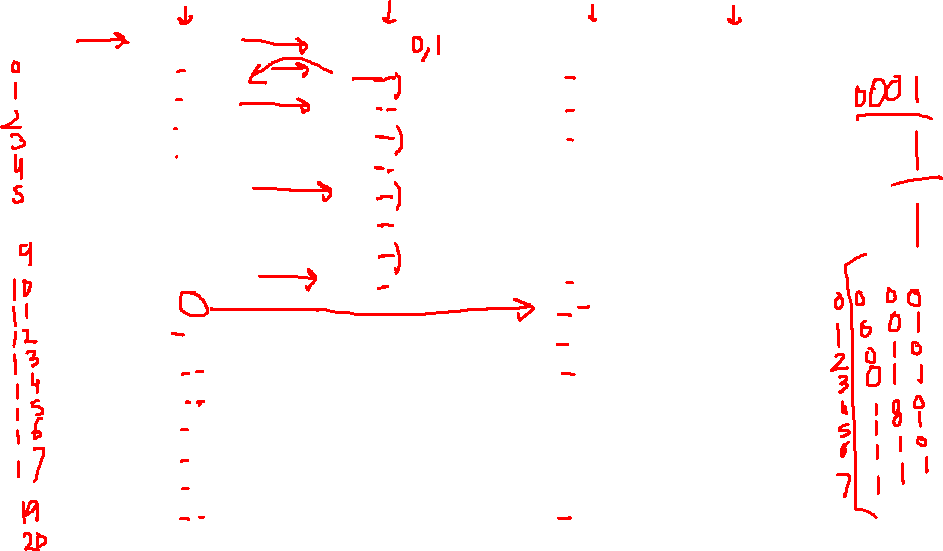 0,1
0
1
2
3
4
5
9
10
11
12
13
14
15
16
17
19
20
0001
1
1
0 0 0 0
1 0 0 1
2 0 1 0
3 0 1 1
1 0 0
5 1 1
1 1 0
7 1 1 1